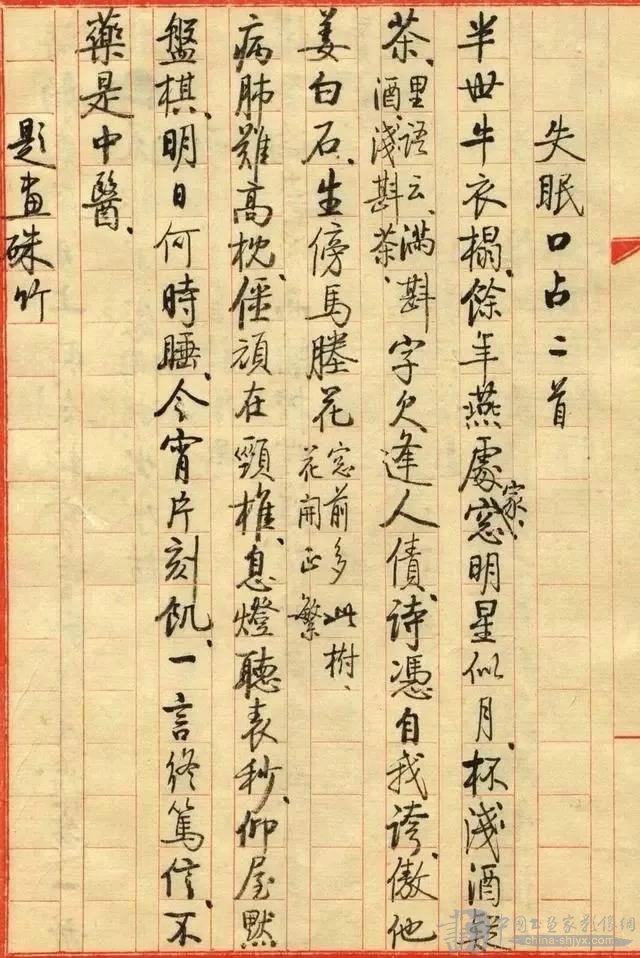 失眠口占二首
半世牛衣榻、餘年燕處家、窓明星似月、杯淺酒疑
茶、里語云、滿斟酒、淺斟茶、字欠逢人債、詩憑自我誇、傲他
姜白石、生傍馬塍花窓前多此樹、花開正繁
病肺難高枕、僵頑在頸椎、息燈聽表秒、仰屋默
盤棋、明日何時睡、今宵片刻飢、一言終篤信、不
藥是中醫、
題畫硃竹
china-shjyx.com